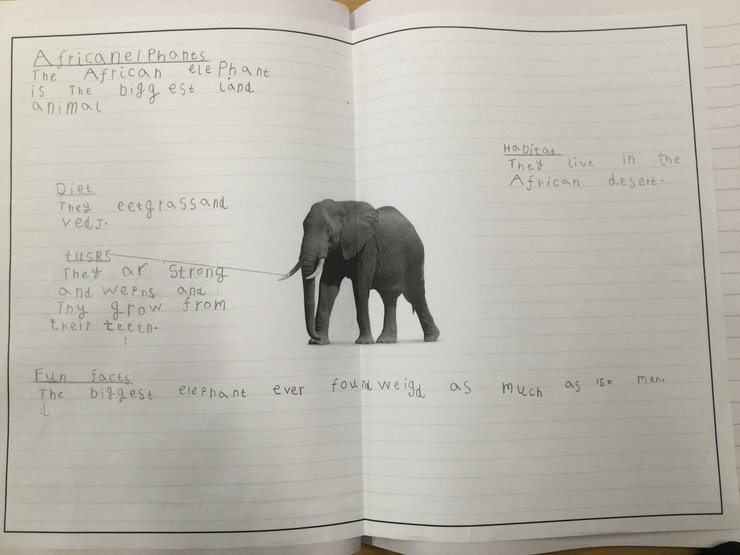 Africanelphants
The African elephant
is The biggest Land
animal
Habitat
They live in the
African desert.
Diet
They eetgrassand
vedJ.
tusks
They ar Strong
and wepns and
Thy grow from
their teeth.
Fun facts
The biggest elephant ever found weigd as much as 150 men.